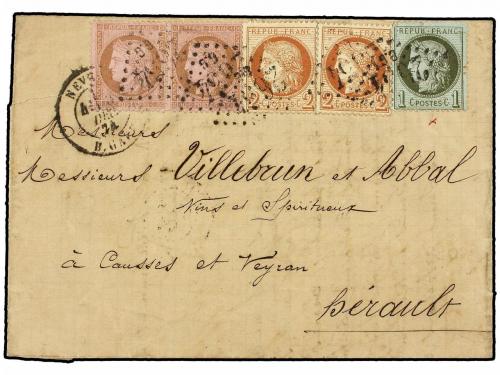 REPUB. FRANC. REPUB. FRANC. REPUB. FRANC.
2 C POSTES C 2 2 C POSTES C 2 1 C POSTES C 1
Messieurs
Messieurs Villebrun et Abbal
Vins et Spiritueux
à Causses et Veyran
hérault